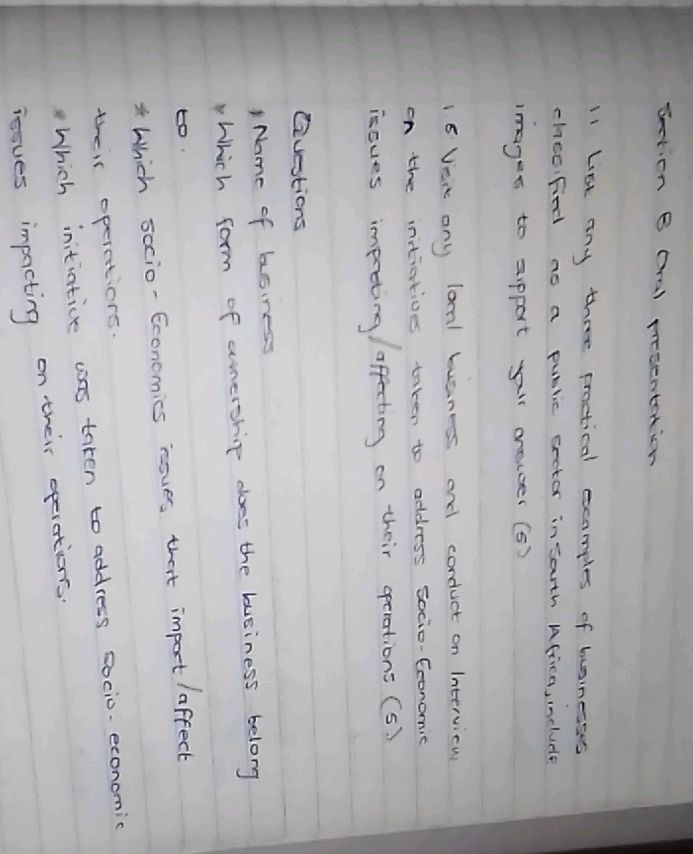 Section B Oral presentation
1.1 List any three practical examples of businesses
classified as a public sector in South Africa, include
images to support your answer (5)
1.5 Visit any local business and conduct an Interview
on the initiatives taken to address Socio-Economic
issues impacting/affecting on their operations (5.)
Questions
* Name of business
* Which form of ownership does the business belong
to.
* Which socio-Economics issues that impact/affect
their operations.
* Which initiative was taken to address Socio-economic
issues impacting on their operations.